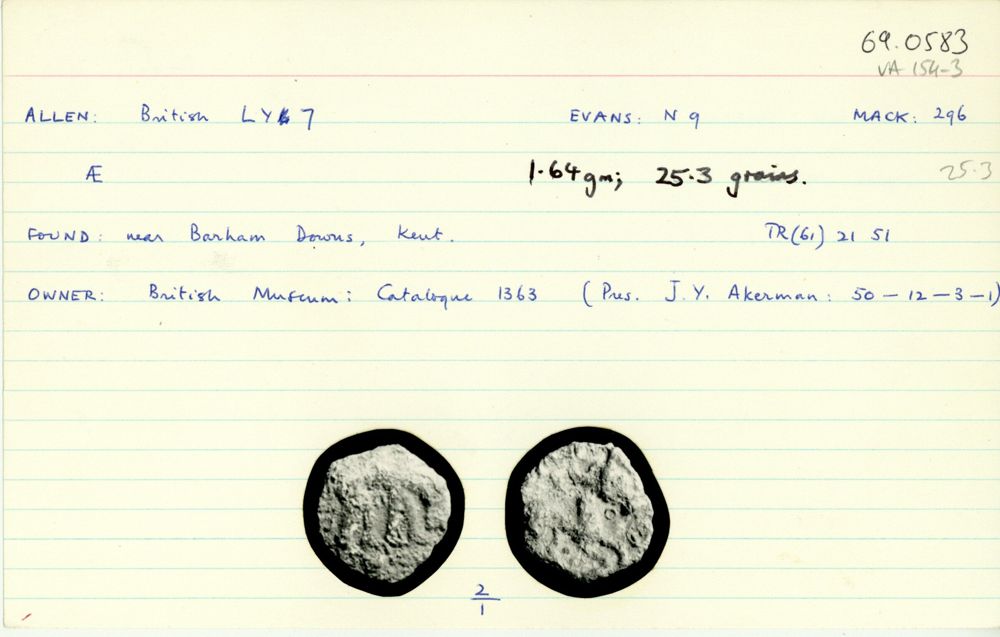 69.0583
VA 154-3
ALLEN: British LY 7 EVANS: N 9 MACK: 296
Æ 1.64gm; 25.3 grains. 25.3
FOUND: near Barham Downs, Kent. TR(61) 21 51
OWNER: British Museum: Catalogue 1363 (Pres. J.Y. Akerman: 50-12-3-1)
2
1